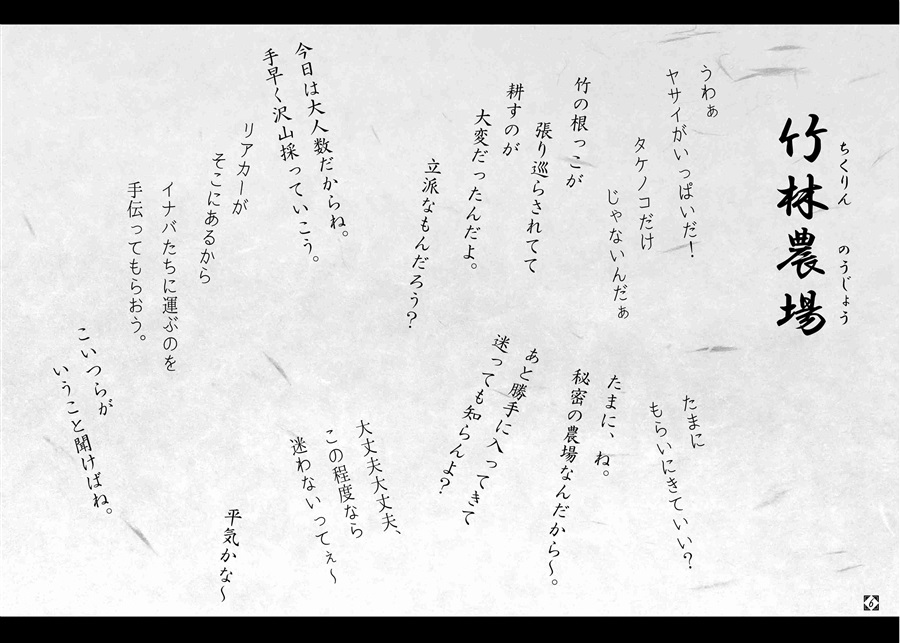 竹林農場
ちくりん のうじょう
うわぁ
ヤサイがいっぱいだ！
タケノコだけ
じゃないんだぁ
竹の根っこが
張り巡らされてて
耕すのが
大変だったんだよ。
立派なもんだろう？
たまに
もらいにきていい？
たまに、ね。
秘密の農場なんだから～。
あと勝手に入ってきて
迷っても知らんよ？
大丈夫大丈夫、
この程度なら
迷わないってぇ～
今日は大人数だからね。
手早く沢山採っていこう。
リアカーが
そこにあるから
イナバたちに運ぶのを
手伝ってもらおう。
平気かな～
こいつらが
いうこと聞けばね。
6